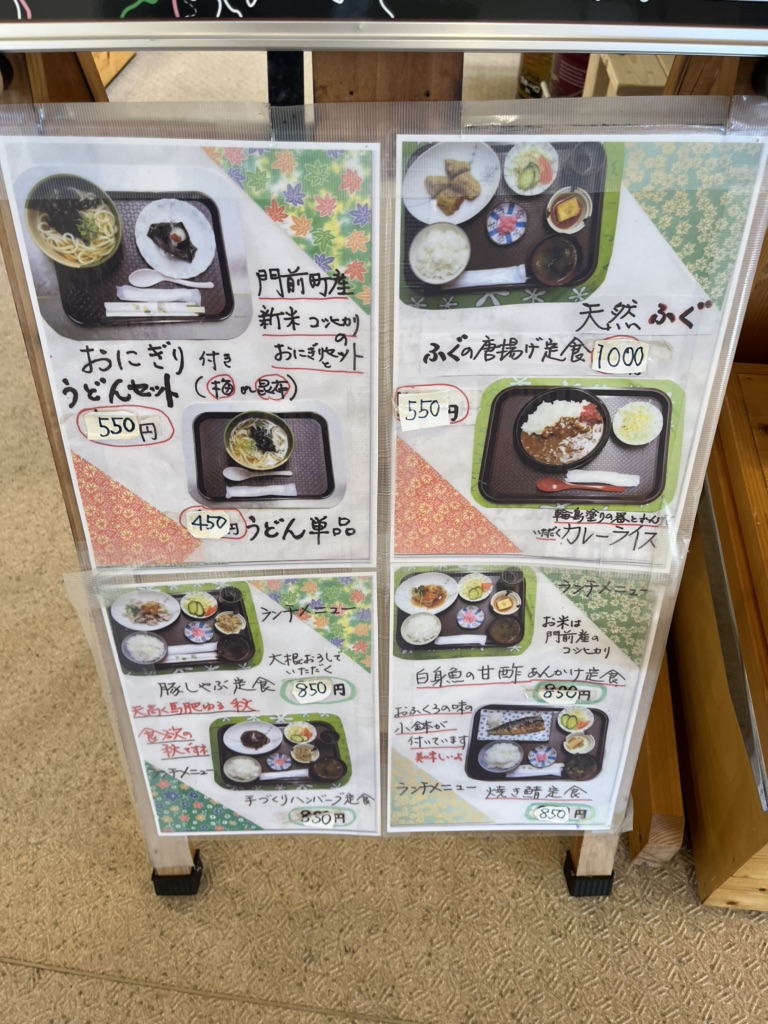 門前町産
新米 コシヒカリ
の
おにぎりと
セット
おにぎり 付き
うどんセット (梅 or 昆布)
550円
450円 うどん単品
天然 ふぐ
ふぐの唐揚げ定食 1000
550円
輪島塗りの器で
いただくカレーライス
ランチメニュー
大根おろしで
いただく
豚しゃぶ定食 850円
天高く馬肥ゆる秋
食欲の
秋です
メニュー
手づくりハンバーグ定食
850円
ランチメニュー
お米は
門前産の
コシヒカリ
白身魚の甘酢あんかけ定食
800円
おふくろの味の
小鉢が
付いています
美味しいよ
ランチメニュー 焼き鯖定食
850円